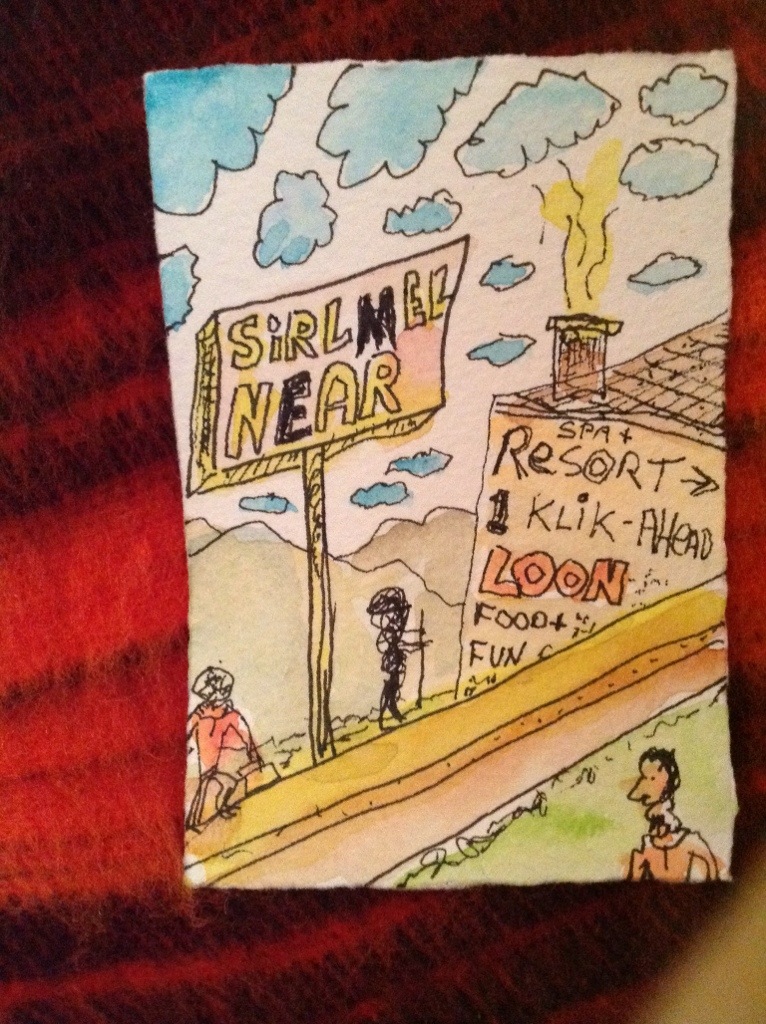 SiRLMEL
NEAR
SPA +
RESORT →
1 KLiK-AHEAD
LOON
FOOD+
FUN